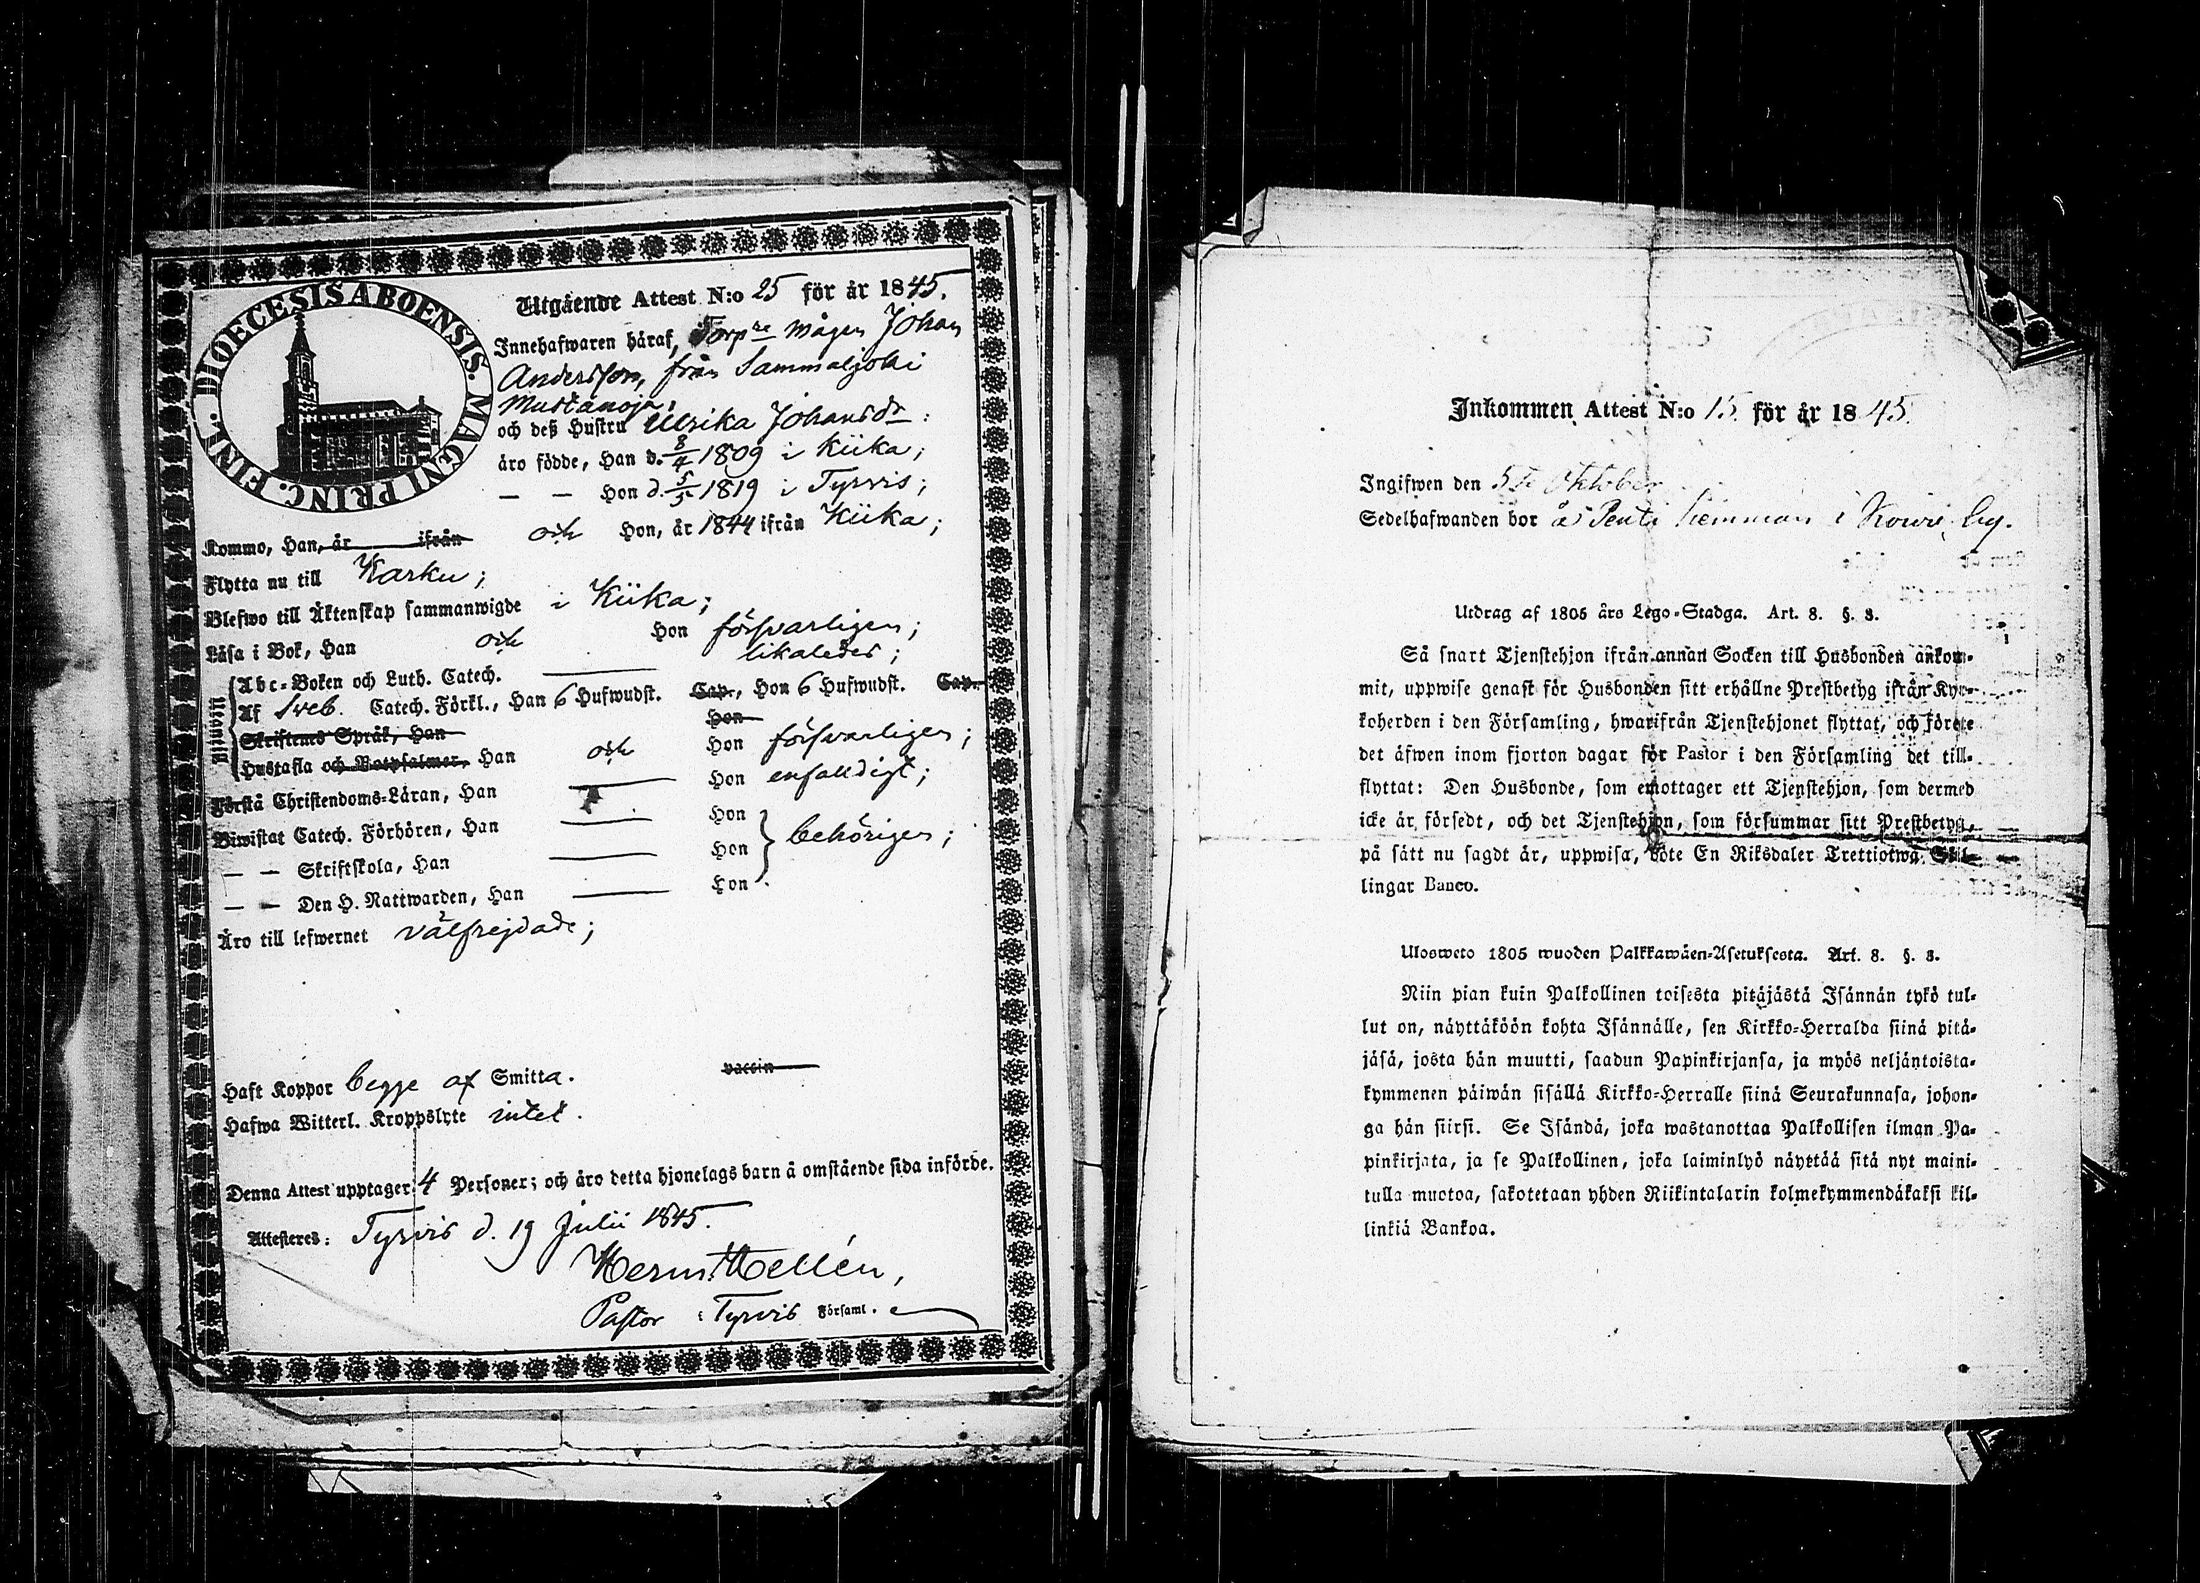 DIOECESIS ABOENSIS. MAGNI PRINC. FINL.
Utgående Attest N:o 25 för år 1845.
Innehafwaren häraf, Torp:re mågen Johan
Andersson, från Sammaljoki
Mustanoja;
och deß Hustru Ulrika Johansd:r
äro födde, Han d. 8/4 1809 i Kiika;
— — Hon d. 5/5 1819 i Tyrvis;
Kommo, Han, år ifrån och Hon, år 1844 ifrån Kiika;
Flytta nu till Karku;
Blefwo till Äktenskap sammanwigde i Kiika;
Läsa i Bok, Han och Hon försvarligen;
Utanill
Abc-Boken och Luth. Catech. likaledes;
Af Sveb. Catech. Förkl., Han 6 Hufwudst. Cap., Hon 6 Hufwudst. Cap.
Skriftems Språk, Han Hon
Hustafla och Botpsalmer, Han och Hon försvarligen;
Förstå Christendoms-Läran, Han Hon enfalldigt;
Biwistat Catech. Förhören, Han Hon
— — Skriftskola, Han Hon behörigen;
— — Den H. Nattwarden, Han Hon
Äro till lefwernet välfrejdade;
Haft Koppor begge af Smitta. vaccin
Hafwa Witterl. Kroppslyte intet.
Denna Attest upptager 4 Personer; och äro detta hjonelags barn å omstående sida införde.
Attesteres: Tyrvis d. 19 Julii 1845.
Herm. Hellén,
Pastor i Tyrvis Församl.
Inkommen Attest N:o 15 för år 1845.
Ingifwen den 5te Oktober
Sedelhafwanden bor å Penti hemman i by.
Utdrag af 1805 års Lego-Stadga. Art. 8. §. 3.
Så snart Tjenstehjon ifrån annan Socken till Husbonden ankom-
mit, uppwise genast för Husbonden sitt erhållne Prestbetyg ifrån Kyr-
koherden i den Församling, hwarifrån Tjenstehjonet flyttat, och förete
det äfwen inom fjorton dagar för Pastor i den Församling det till-
flyttat: Den Husbonde, som emottager ett Tjenstehjon, som dermed
icke är försedt, och det Tjenstehjon, som försummar sitt Prestbetyg,
på sätt nu sagdt är, uppwisa, böte En Riksdaler Trettiotwå Skil-
lingar Banco.
Ulosweto 1805 wuoden Palkkawäen-Asetuksesta. Art. 8. §. 3.
Niin pian kuin Palkollinen toisesta pitäjästä Isännän tykö tul-
lut on, näyttäköön kohta Isännälle, sen Kirkko-Herralda siinä pitä-
jäsä, josta hän muutti, saadun Papinkirjansa, ja myös neljäntoista-
kymmenen päiwän sisällä Kirkko-Herralle siinä Seurakunnasa, johon-
ga hän siirsi. Se Isändä, joka wastanottaa Palkollisen ilman Pa-
pinkirjata, ja se Palkollinen, joka laiminlyö näyttää sitä nyt maini-
tulla muotoa, sakotetaan yhden Riikintalarin kolmekymmendäkaksi kil-
linkiä Bankoa.